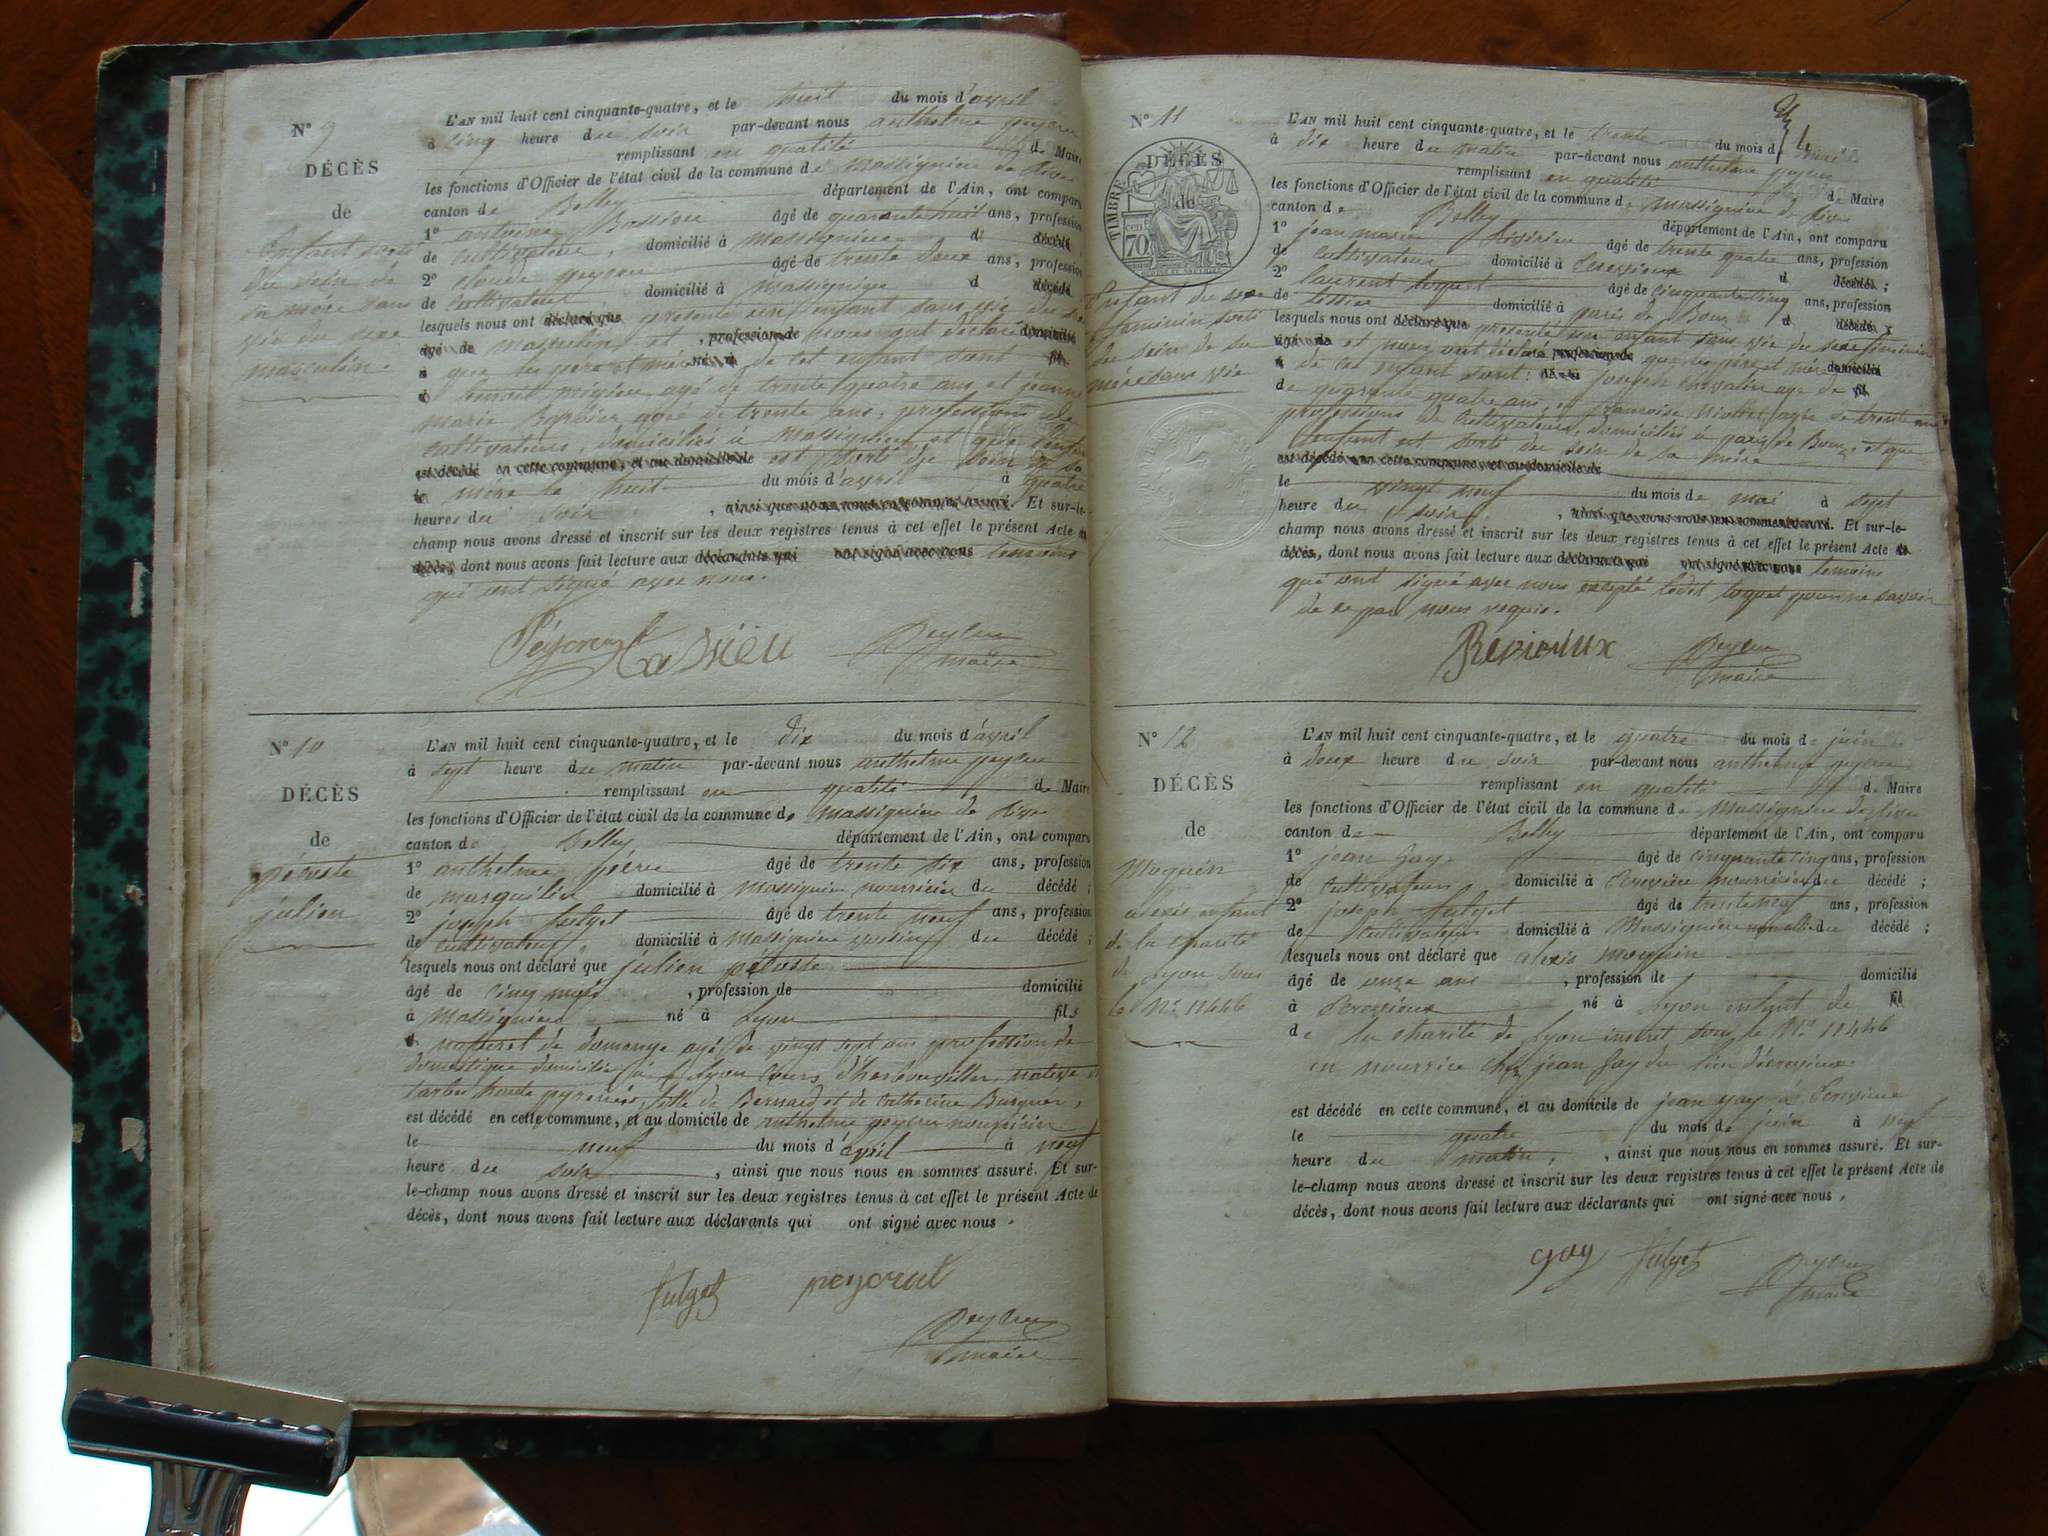 N° 9
DÉCÈS
de
Enfant sorti
du sein de
sa mère sans
vie du sexe
masculin.
L'AN mil huit cent cinquante-quatre, et le huit du mois d'avril
à cinq heure du soir par-devant nous anthelme peycru
remplissant en qualité de Maire
les fonctions d'Officier de l'état civil de la commune de Massignieu de Rive
canton de Belley département de l'Ain, ont comparu
1° antoine âgé de quarante huit ans, profession
de cultivateur, domicilié à Massignieu d décédé
2° âgé de trente deux ans, profession
de Cultivateur domicilié à Massignieu d décédé
lesquels nous ont déclaré que présenté un enfant sans vie du
âgé de masculin et , profession de nous ont déclaré domicilié
à que les père et mère né à de cet enfant sont fil
d agé de trente quatre ans et jeanne
marie agée de trente ans, professions de
cultivateurs, domiciliés à Massignieu, et que l'enfant
est décédé en cette commune, et au domicile de est sorti du sein de sa
le mère le huit du mois d'avril à quatre
heures du soir , ainsi que nous nous en sommes assuré. Et sur-le-
champ nous avons dressé et inscrit sur les deux registres tenus à cet effet le présent Acte de
décès, dont nous avons fait lecture aux déclarants qui ont signé avec nous temoins
qui ont signé avec nous.
Peycru
maire
N° 10
DÉCÈS
de
péroste
julien
L'AN mil huit cent cinquante-quatre, et le dix du mois d'avril
à sept heure du matin par-devant nous anthelme peycru
remplissant en qualité de Maire
les fonctions d'Officier de l'état civil de la commune de Massignieu de Rive
canton de Belley département de l'Ain, ont comparu
1° anthelme âgé de trente six ans, profession
de domicilié à Massignieu nourricier du décédé ;
2° joseph fulget âgé de trente neuf ans, profession
de cultivateur, domicilié à Massignieu voisin du décédé ;
lesquels nous ont déclaré que julien
âgé de cinq mois , profession de domicilié
à Massignieu né à Lyon fils
d naturel de agé de vingt sept ans profession de
domestique domiciliée à Lyon Cours d'herbouville, native de
tarbe haute pyrénées, fille de Bernard et de Catherine
est décédé en cette commune, et au domicile de anthelme nourricier
le neuf du mois d'avril à neuf
heure du soir , ainsi que nous nous en sommes assuré. Et sur-
le-champ nous avons dressé et inscrit sur les deux registres tenus à cet effet le présent Acte de
décès, dont nous avons fait lecture aux déclarants qui ont signé avec nous.
fulget peyorat
Peycru
maire
N° 11
DÉCÈS
de
TIMBRE
70 cen
Enfant du sexe
faminin sorti
du sein de sa
mère sans vie
L'AN mil huit cent cinquante-quatre, et le trente du mois de mai
à dix heure du matin par-devant nous anthelme peycru
remplissant en qualité de Maire
les fonctions d'Officier de l'état civil de la commune de Massignieu de Rive
canton de Belley département de l'Ain, ont comparu
1° jean marie âgé de trente quatre ans, profession
de Cultivateur domicilié à d décédé ;
2° laurent toquet âgé de cinquante cinq ans, profession
de domicilié à paris de Bour d décédé
lesquels nous ont déclaré que présenté un enfant sans vie du sexe féminin
âgé de et nous ont déclaré profession de que les père et mère domicilié
à de cet enfant sont : né à joseph agé de fil
de quarante quatre ans et françoise agée de trente
professions de Cultivateurs, domiciliés à et que
l'enfant est sorti du sein de sa mère
est décédé en cette commune, et au domicile de
le vingt neuf du mois de mai à sept
heure du soir , ainsi que nous nous en sommes assuré. Et sur-le-
champ nous avons dressé et inscrit sur les deux registres tenus à cet effet le présent Acte de
décès, dont nous avons fait lecture aux déclarants qui ont signé avec nous temoins
qui ont signé avec nous excepté ledit toquet pour ne savoir
de ce par nous requis.
Peycru
maire
N° 12
DÉCÈS
de
Moguin
alexis enfant
de la charité
de Lyon sous
le N° 11446
L'AN mil huit cent cinquante-quatre, et le quatre du mois de juin
à deux heure du soir par-devant nous anthelme peycru
remplissant en qualité de Maire
les fonctions d'Officier de l'état civil de la commune de Massignieu de Rive
canton de Belley département de l'Ain, ont comparu
1° jean Gay âgé de cinquante cinq ans, profession
de Cultivateur domicilié à nourricier du décédé ;
2° joseph fulget âgé de trente neuf ans, profession
de Cultivateur domicilié à Massignieu du décédé ;
lesquels nous ont déclaré que alexis moguin
âgé de onze ans , profession de domicilié
à né à Lyon enfant de fil
de la charité de Lyon inscrit sous le N° 11446
en nourrice chez jean Gay du lieu
est décédé en cette commune, et au domicile de jean gay à
le quatre du mois de juin à neuf
heure du matin, , ainsi que nous nous en sommes assuré. Et sur-
le-champ nous avons dressé et inscrit sur les deux registres tenus à cet effet le présent Acte de
décès, dont nous avons fait lecture aux déclarants qui ont signé avec nous.
gay fulget
Peycru
maire